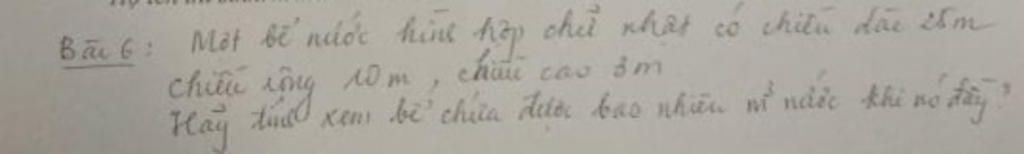 Bài 6: Một bể nước hình hộp chữ nhật có chiều dài 25m
chiều rộng 10m, chiều cao 3m
Hãy tính xem bể chứa được bao nhiêu m³ nước khi nó đầy?